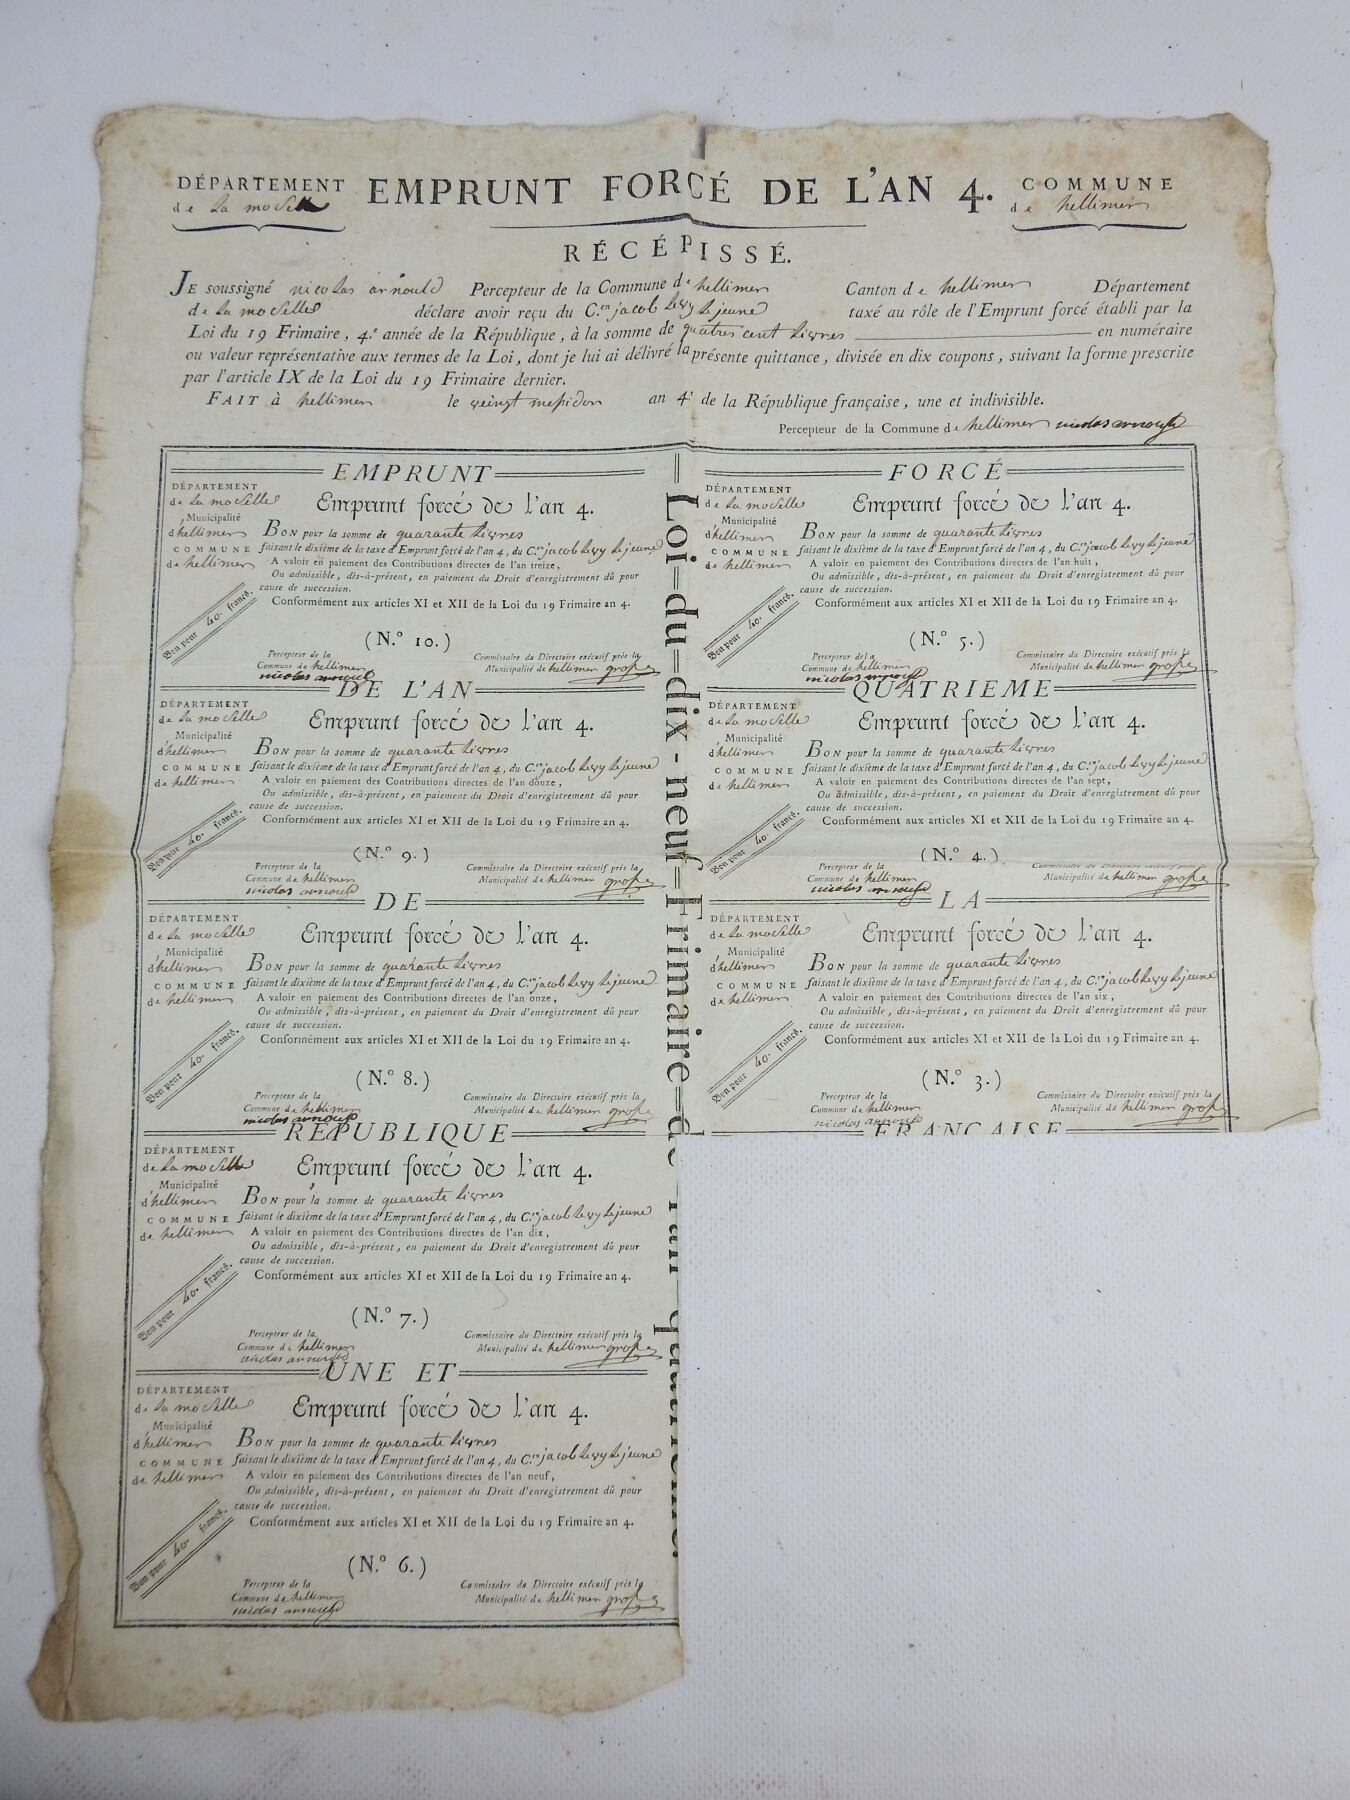 DÉPARTEMENT
de La moselle
EMPRUNT FORCÉ DE L'AN 4.
COMMUNE
de hellimer
RÉCÉPISSÉ.
JE soussigné nicolas arnould Percepteur de la Commune de hellimer Canton de hellimer Département
de La moselle déclare avoir reçu du C.en jacob Levy Lejeune taxé au rôle de l'Emprunt forcé établi par la
Loi du 19 Frimaire, 4.e année de la République, à la somme de quatres cent Livres en numéraire
ou valeur représentative aux termes de la Loi, dont je lui ai délivré la présente quittance, divisée en dix coupons, suivant la forme prescrite
par l'article IX de la Loi du 19 Frimaire dernier.
FAIT à hellimer le veingt mesidor an 4.e de la République française, une et indivisible.
Percepteur de la Commune de hellimer nicolas arnould
EMPRUNT
DÉPARTEMENT
de La moselle
Municipalité
d'hellimer
COMMUNE
de hellimer
Emprunt forcé de l'an 4.
BON pour la somme de quarante Livres
faisant le dixième de la taxe d'Emprunt forcé de l'an 4, du C.en jacob Levy Lejeune
A valoir en paiement des Contributions directes de l'an treize,
Ou admissible, dès-à-présent, en paiement du Droit d'enregistrement dû pour
cause de succession.
Conformément aux articles XI et XII de la Loi du 19 Frimaire an 4.
Bon pour 40. francs.
(N.o 10.)
Percepteur de la
Commune de hellimer
nicolas arnould
Commissaire du Directoire exécutif près la
Municipalité de hellimer
DE L'AN
DÉPARTEMENT
de La moselle
Municipalité
d'hellimer
COMMUNE
de hellimer
Emprunt forcé de l'an 4.
BON pour la somme de quarante Livres
faisant le dixième de la taxe d'Emprunt forcé de l'an 4, du C.en jacob Levy Lejeune
A valoir en paiement des Contributions directes de l'an douze,
Ou admissible, dès-à-présent, en paiement du Droit d'enregistrement dû pour
cause de succession.
Conformément aux articles XI et XII de la Loi du 19 Frimaire an 4.
Bon pour 40. francs.
(N.o 9.)
Percepteur de la
Commune de hellimer
nicolas arnould
Commissaire du Directoire exécutif près la
Municipalité de hellimer
DE
DÉPARTEMENT
de La moselle
Municipalité
d'hellimer
COMMUNE
de hellimer
Emprunt forcé de l'an 4.
BON pour la somme de quarante Livres
faisant le dixième de la taxe d'Emprunt forcé de l'an 4, du C.en jacob Levy Lejeune
A valoir en paiement des Contributions directes de l'an onze,
Ou admissible, dès-à-présent, en paiement du Droit d'enregistrement dû pour
cause de succession.
Conformément aux articles XI et XII de la Loi du 19 Frimaire an 4.
Bon pour 40. francs.
(N.o 8.)
Percepteur de la
Commune de hellimer
nicolas arnould
Commissaire du Directoire exécutif près la
Municipalité de hellimer
RÉPUBLIQUE
DÉPARTEMENT
de La moselle
Municipalité
d'hellimer
COMMUNE
de hellimer
Emprunt forcé de l'an 4.
BON pour la somme de quarante Livres
faisant le dixième de la taxe d'Emprunt forcé de l'an 4, du C.en jacob Levy Lejeune
A valoir en paiement des Contributions directes de l'an dix,
Ou admissible, dès-à-présent, en paiement du Droit d'enregistrement dû pour
cause de succession.
Conformément aux articles XI et XII de la Loi du 19 Frimaire an 4.
Bon pour 40. francs.
(N.o 7.)
Percepteur de la
Commune de hellimer
nicolas arnould
Commissaire du Directoire exécutif près la
Municipalité de hellimer
UNE ET
DÉPARTEMENT
de La moselle
Municipalité
d'hellimer
COMMUNE
de hellimer
Emprunt forcé de l'an 4.
BON pour la somme de quarante Livres
faisant le dixième de la taxe d'Emprunt forcé de l'an 4, du C.en jacob Levy Lejeune
A valoir en paiement des Contributions directes de l'an neuf,
Ou admissible, dès-à-présent, en paiement du Droit d'enregistrement dû pour
cause de succession.
Conformément aux articles XI et XII de la Loi du 19 Frimaire an 4.
Bon pour 40. francs.
(N.o 6.)
Percepteur de la
Commune de hellimer
nicolas arnould
Commissaire du Directoire exécutif près la
Municipalité de hellimer
Loi du dix-neuf Frimaire de l'an quatrième.
FORCÉ
DÉPARTEMENT
de La moselle
Municipalité
d'hellimer
COMMUNE
de hellimer
Emprunt forcé de l'an 4.
BON pour la somme de quarante Livres
faisant le dixième de la taxe d'Emprunt forcé de l'an 4, du C.en jacob Levy Lejeune
A valoir en paiement des Contributions directes de l'an huit,
Ou admissible, dès-à-présent, en paiement du Droit d'enregistrement dû pour
cause de succession.
Conformément aux articles XI et XII de la Loi du 19 Frimaire an 4.
Bon pour 40. francs.
(N.o 5.)
Percepteur de la
Commune de hellimer
nicolas arnould
Commissaire du Directoire exécutif près la
Municipalité de hellimer
QUATRIEME
DÉPARTEMENT
de La moselle
Municipalité
d'hellimer
COMMUNE
de hellimer
Emprunt forcé de l'an 4.
BON pour la somme de quarante Livres
faisant le dixième de la taxe d'Emprunt forcé de l'an 4, du C.en jacob Levy Lejeune
A valoir en paiement des Contributions directes de l'an sept,
Ou admissible, dès-à-présent, en paiement du Droit d'enregistrement dû pour
cause de succession.
Conformément aux articles XI et XII de la Loi du 19 Frimaire an 4.
Bon pour 40. francs.
(N.o 4.)
Percepteur de la
Commune de hellimer
nicolas arnould
Commissaire du Directoire exécutif près la
Municipalité de hellimer
LA
DÉPARTEMENT
de La moselle
Municipalité
d'hellimer
COMMUNE
de hellimer
Emprunt forcé de l'an 4.
BON pour la somme de quarante Livres
faisant le dixième de la taxe d'Emprunt forcé de l'an 4, du C.en jacob Levy Lejeune
A valoir en paiement des Contributions directes de l'an six,
Ou admissible, dès-à-présent, en paiement du Droit d'enregistrement dû pour
cause de succession.
Conformément aux articles XI et XII de la Loi du 19 Frimaire an 4.
Bon pour 40. francs.
(N.o 3.)
Percepteur de la
Commune de hellimer
nicolas arnould
Commissaire du Directoire exécutif près la
Municipalité de hellimer
FRANÇAISE